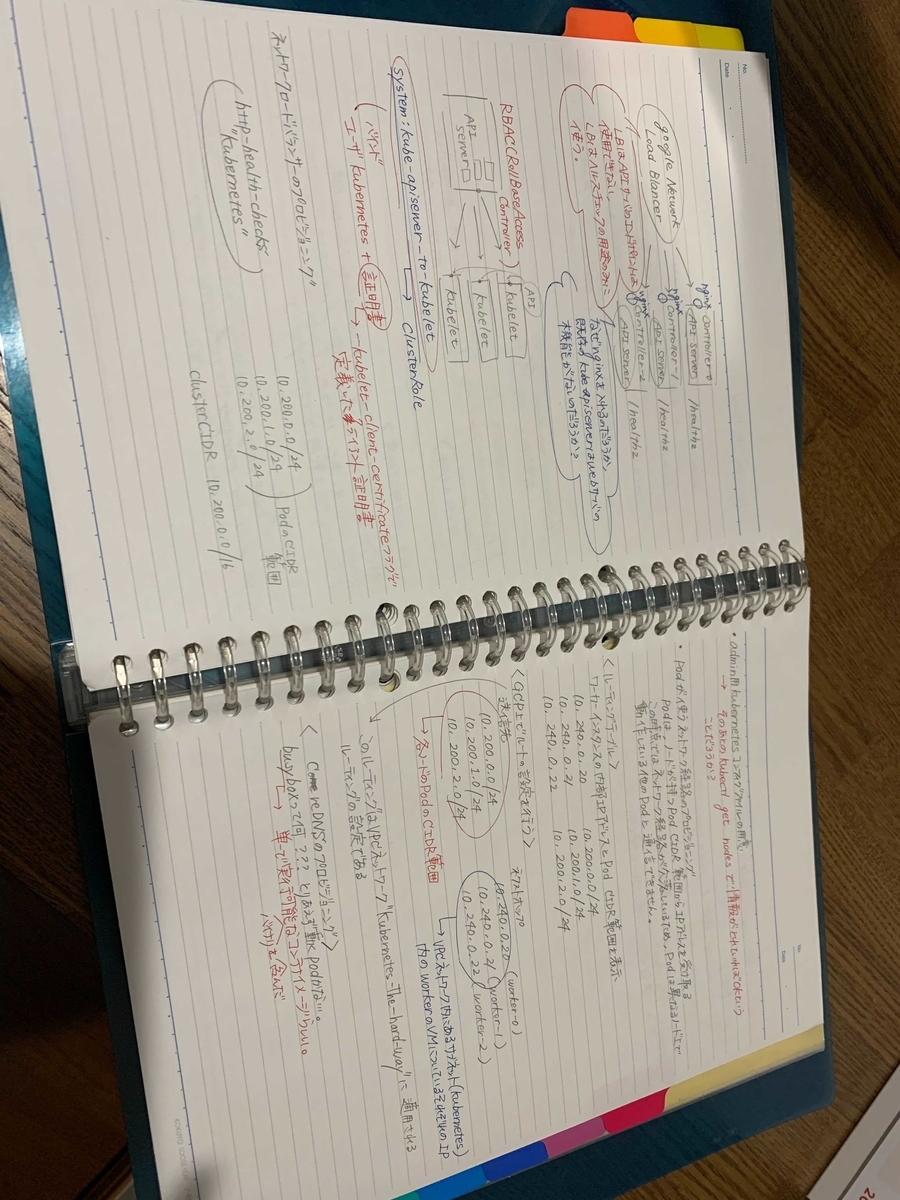 No.
Date
google Network
Load Blancer
nginx
Controller-0
API server
/healthz
nginx
Controller-1
API server
/healthz
nginx
Controller-2
API server
/healthz
LBはAPIサーバのエンドポイントは
使用できない。
LBはヘルスチェックの用途のみに
使う。
なぜnginxを入れるのだろうか。
既存のkube apiserverはwebサーバの
機能がないのだろうか?
RBAC(RollBaseAccess
Controller)
API
server
API
kubelet
kubelet
kubelet
system:kube-apiserver-to-kubelet → ClusterRole
バインド
ユーザ"kubernetes + 証明書 → --kubelet-client-certificateフラグで
定義したクライアント証明書
ネットワークロードバランサーのプロビジョニング"
http-health-checks
"kubernetes"
10.200.0.0/24
10.200.1.0/24
10.200.2.0/24
PodのCIDR
範囲
clusterCIDR 10.200.0.0/16
No.
Date
・admin用kubernetesコンフグファイルの用意
→ そのあとのkubectl get nodesで情報がとれればOKという
ことだろうか?
・Podが使うネットワーク経路のプロビジョニング
Podは、ノードが持つPod CIDR範囲からIPアドレスを受け取る
この時点ではネットワーク経路が欠落しているため、Podは異なるノード上で
動作している他のPodと通信できません。
<ルーティングテーブル>
ワーカーインスタンスの内部IPアドレスとPod CIDR範囲を表示
10.240.0.20 10.200.0.0/24
10.240.0.21 10.200.1.0/24
10.240.0.22 10.200.2.0/24
<GCP上でルートの設定を行う>
送信先 ネクストホップ
10.200.0.0/24 10.240.0.20 (worker-0)
10.200.1.0/24 10.240.0.21 (worker-1)
10.200.2.0/24 10.240.0.22 (worker-2)
→ 各ノードのPodのCIDR範囲
→ VPCネットワーク内にあるサブネット(kubernetes)
内のworkerのVMについているそれぞれのIP
このルーティングはVPCネットワーク"kubernetes-The-hard-way"に適用される
ルーティングの設定である
<CoreDNSのプロビジョニング>
busyboxって何??? とりあえず動くpodかな…。
→ 単一で実行可能なコンテナイメージらしい。
バイナリを含んだ